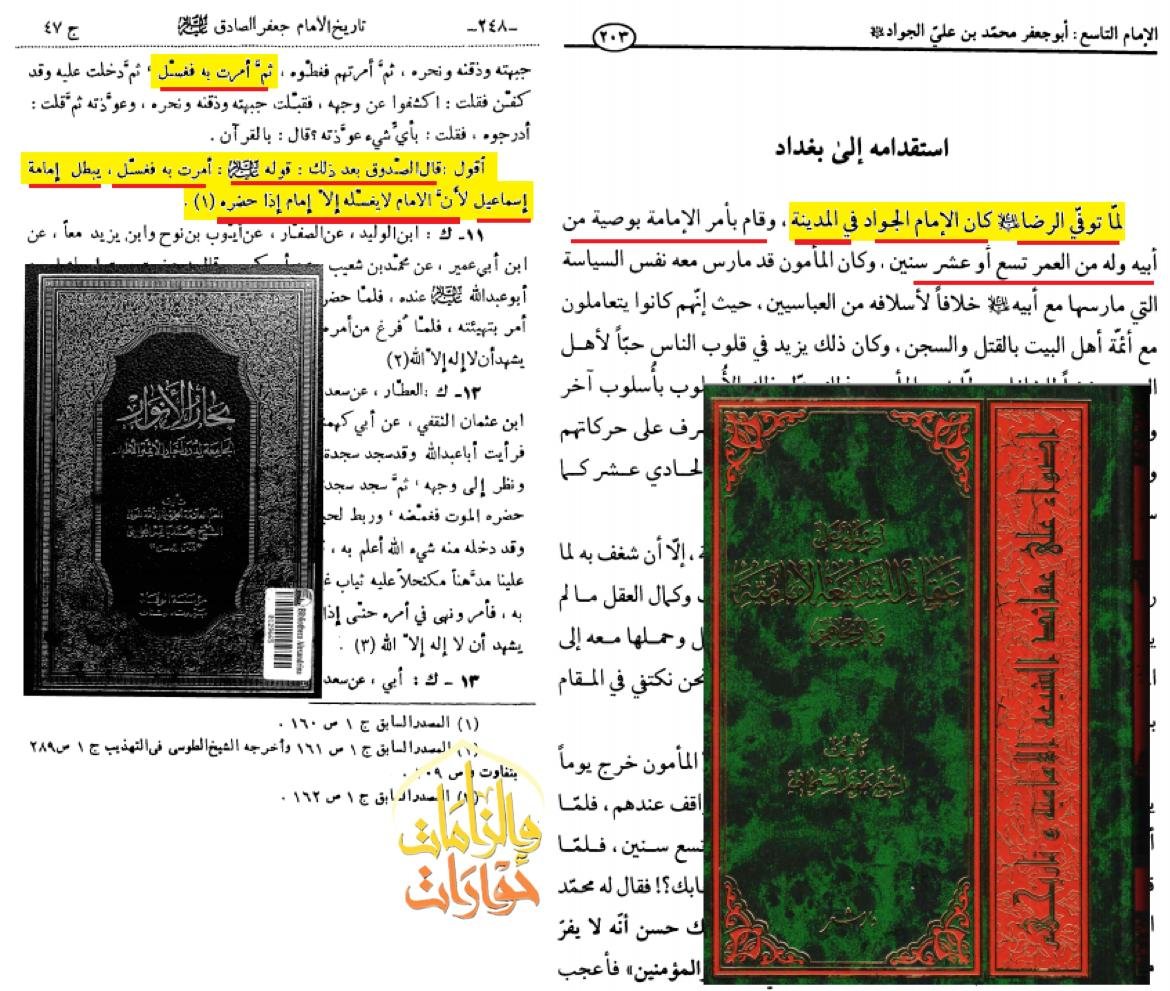 -٢٤٨-
تاريخ الامام جعفر الصادق عليه السلام
ج ٤٧
جبهته وذقنه ونحره ، ثمَّ أمرتهم فغطّوه ، ثمَّ أمرت به فغسّل ، ثمَّ دخلت عليه وقد
كفّن فقلت : اكشفوا عن وجهه ، فقبّلت جبهته وذقنه ونحره ، وعوَّذته ثمَّ قلت :
أدرجوه ، فقلت : بأيِّ شيء عوَّذته ؟ قال : بالقرآن .
أقول : قال الصّدوق بعد ذلك : قوله عليه السلام : أمرت به فغسّل ، يبطل إمامة
إسماعيل لأنَّ الامام لا يغسّله إلاّ إمام إذا حضره (١) .
١١- ك : ابن الوليد ، عن الصفّار ، عن أيّوب بن نوح وابن يزيد معاً ، عن
ابن أبي عمير ، عن محمّد بن شعيب
أبو عبدالله عليه السلام عنده ، فلمّا حضر
أمر بتهيئته ، فلمّا فرغ من أمره
يشهد أن لا إله إلاّ الله (٢)
١٢- ك : العطّار ، عن سعد
ابن عثمان الثقفي ، عن أبي كهمـ
فرأيت أبا عبدالله وقد سجد سجدة
ونظر إلى وجهه ، ثمَّ سجد سجد
حضره الموت فغمّضه ، وربط لحيـ
وقد دخله منه شيء الله أعلم به ،
علينا مدَّهناً مكتحلاً عليه ثياب غـ
به ، فأمر ونهى في أمره حتّى إذا
يشهد أن لا إله إلاّ الله (٣) .
١٣- ك : أبي ، عن سعد
(١) المصدر السابق ج ١ ص ١٦٠ .
المصدر السابق ج ١ ص ١٦١ وأخرجه الشيخ الطوسي في التهذيب ج ١ ص ٢٨٩
بتفاوت
المصدر السابق ج ١ ص ١٦٢ .
بحار الأنوار
الجامعة لدرر أخبار الأئمة الأطهار
Bibliotheca Alexandrina
حوارات
والزامات
الإمام التاسع : أبو جعفر محمّد بن عليّ الجواد عليه السلام
٢٠٣
استقدامه إلىٰ بغداد
لمّا توفّي الرضا عليه السلام كان الإمام الجواد في المدينة ، وقام بأمر الإمامة بوصية من
أبيه وله من العمر تسع أو عشر سنين ، وكان المأمون قد مارس معه نفس السياسة
التي مارسها مع أبيه عليه السلام خلافاً لأسلافه من العباسيين ، حيث إنّهم كانوا يتعاملون
مع أئمّة أهل البيت بالقتل والسجن ، وكان ذلك يزيد في قلوب الناس حبّاً لأهل
بأُسلوب آخر
رف على حركاتهم
لحادي عشر كما
، إلّا أن شغف به لما
وكمال العقل مالم
ل وحملها معه إلى
نحن نكتفي في المقام
المأمون خرج يوماً
اقف عندهم ، فلمّا
تسع سنين ، فلمّا
ابك؟! فقال له محمّد
ك حسن أنّه لا يفرّ
المؤمنين» فأعجب
أضواء على
عقائد الشيعة الإمامية
وتاريخهم
تأليف
الشيخ جعفر السبحاني
أضواء على عقائد الشيعة الإمامية و تاريخهم